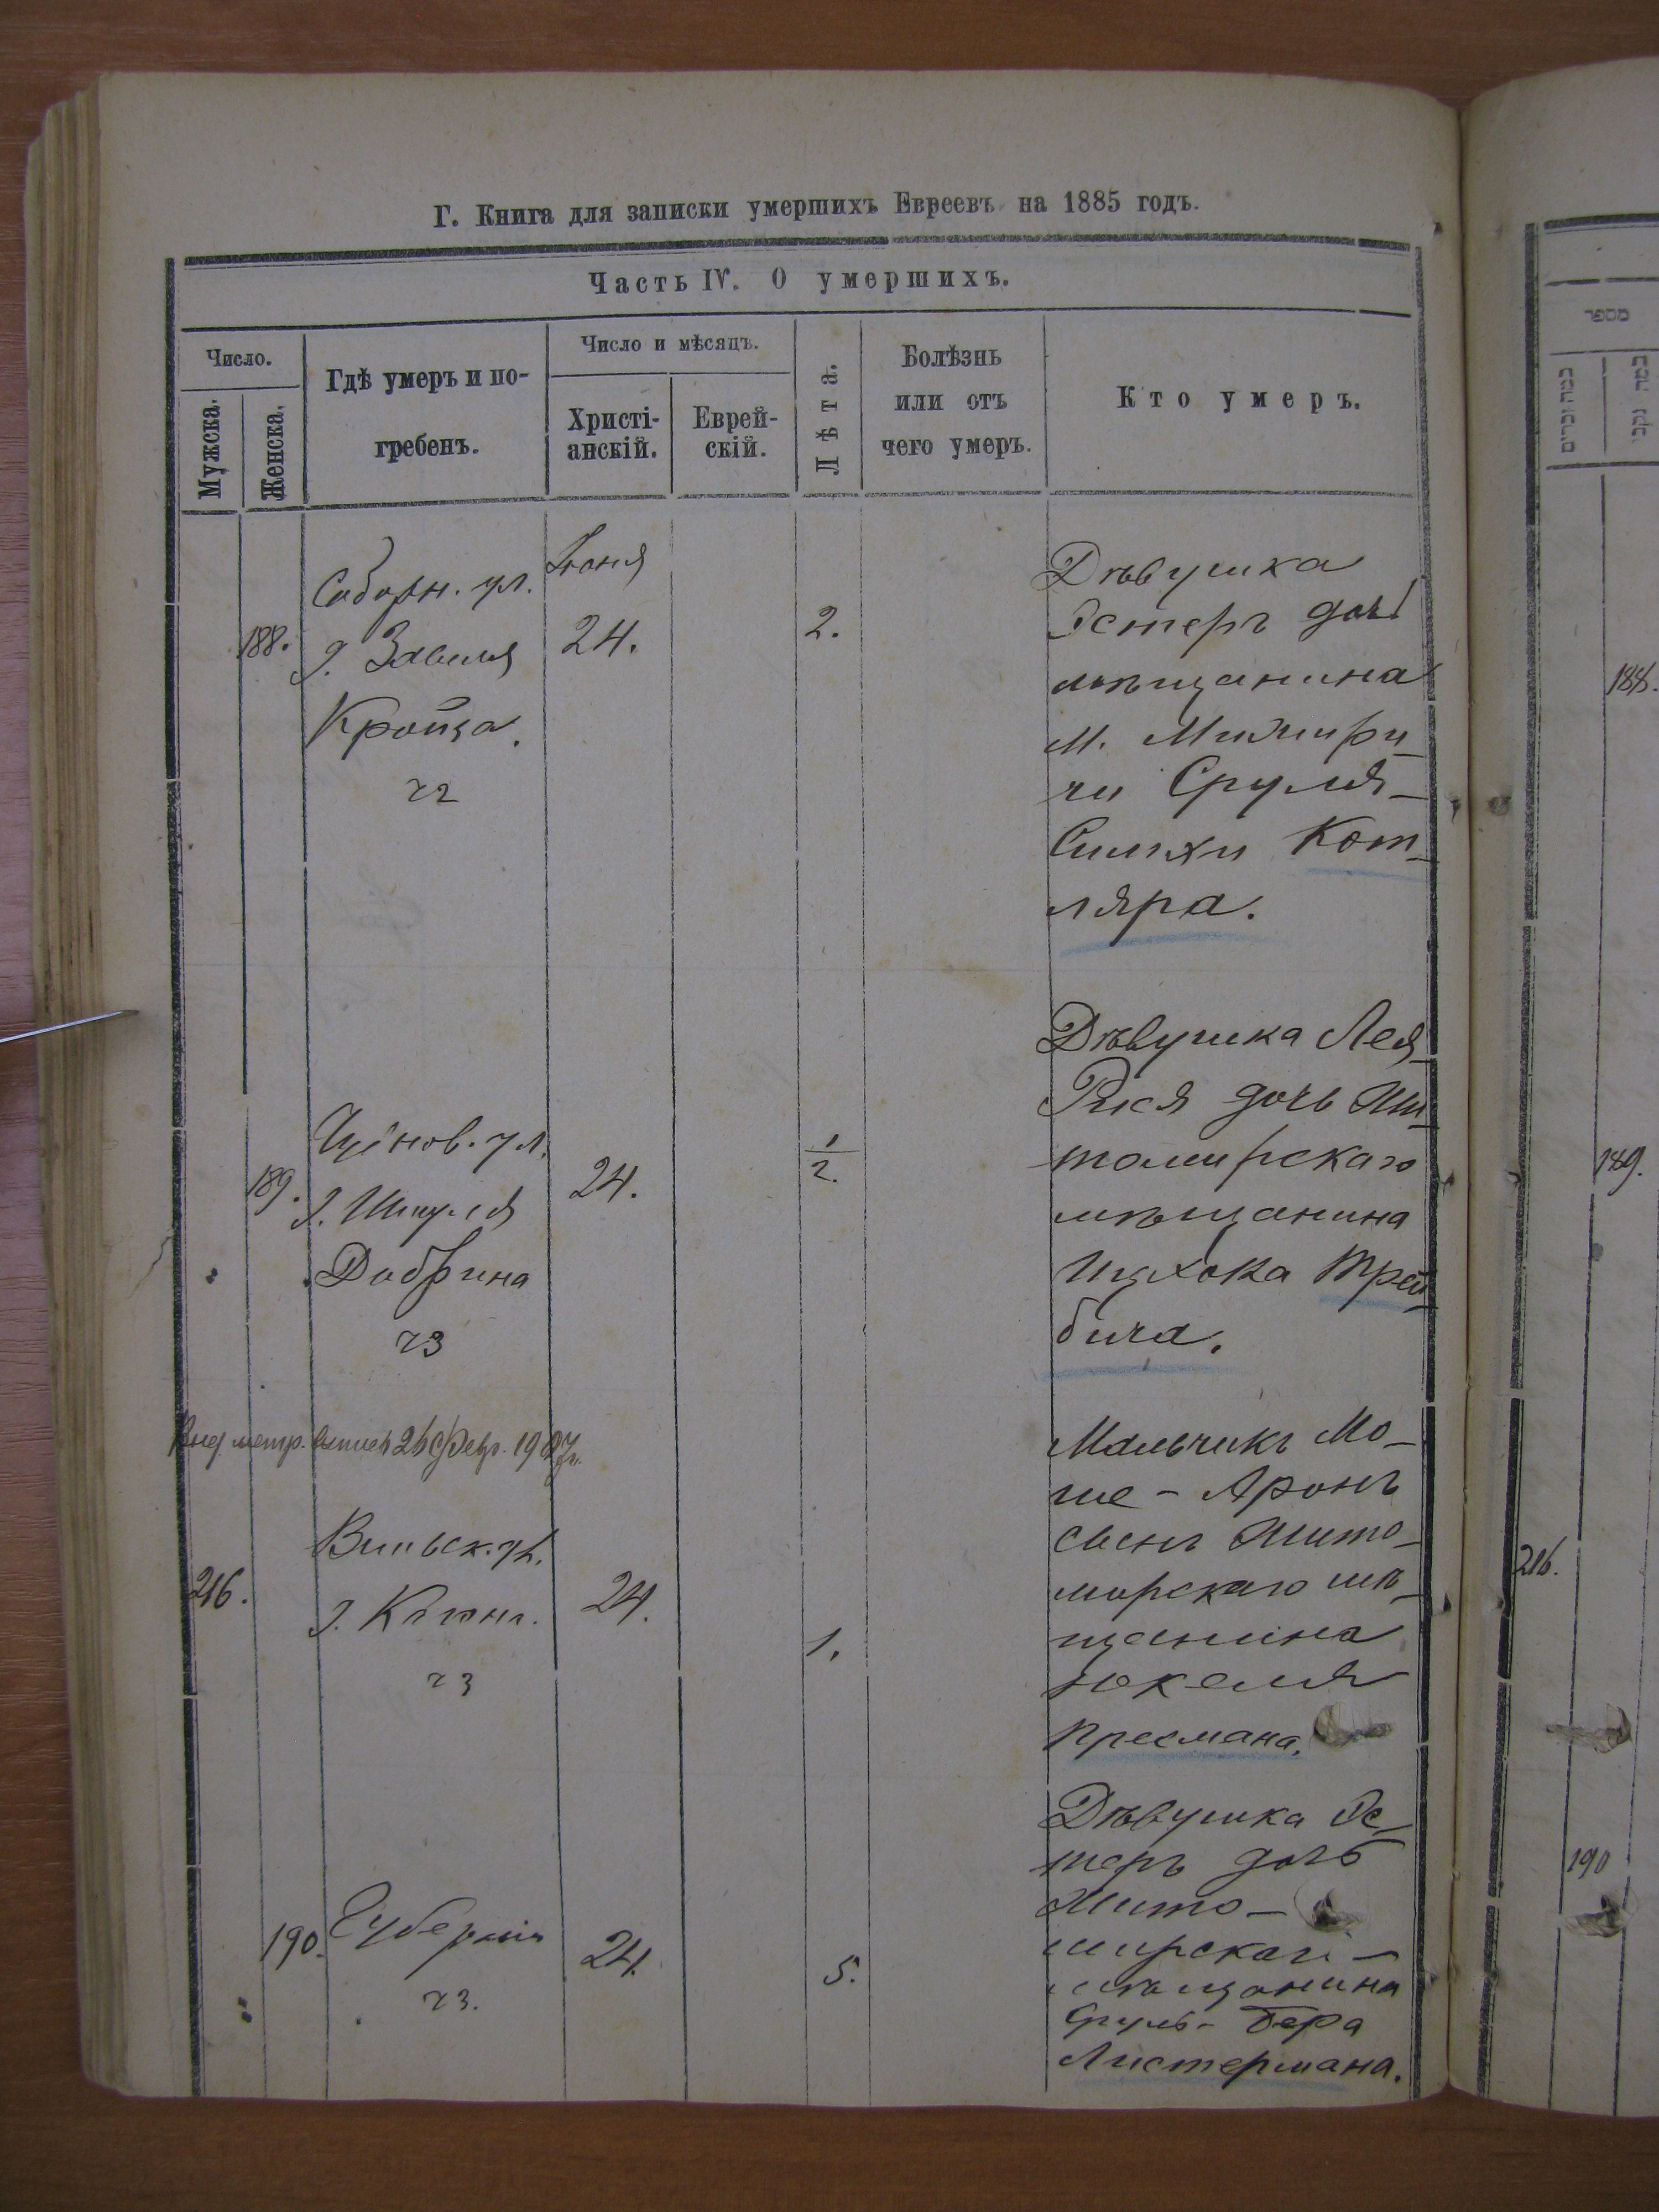 Г. Книга для записки умершихъ Евреевъ на 1885 годъ.
Часть IV. О умершихъ.
Число.
Мужска.
Женска.
Гдѣ умеръ и по-
гребенъ.
Число и мѣсяцъ.
Христі-
анскій.
Еврей-
скій.
Лѣта.
Болѣзнь
или отъ
чего умеръ.
Кто умеръ.
188.
Соборн. ул.
д. Завеля
Кройза.
ч2
Іюня
24.
2.
Дѣвушка
Эстеръ дочь
мѣщанина
м. Межири
чи Сруля-
Симхи Кот-
ляра.
189.
ул.
д. Шмуля
Добрина
ч3
24.
1/2.
Дѣвушка Лея-
Рися дочь Жи-
томирскаго
мѣщанина
Ицхока Трей-
бича.
Выд. метр. выпись 26 Февр. 1907 г.
216.
Вильск. ул.
д.
ч3
24.
1.
Мальчикъ Мо-
ше-Аронъ
сынъ Жито-
мирскаго мѣ-
щанина
Іокеля
Пресмана.
190.
Губерни
ч3.
24.
5.
Дѣвушка Эс-
теръ дочь
Жито-
мирскаго
мѣщанина
Сруль-Бера
Листермана.
188.
189.
216.
190
מספר